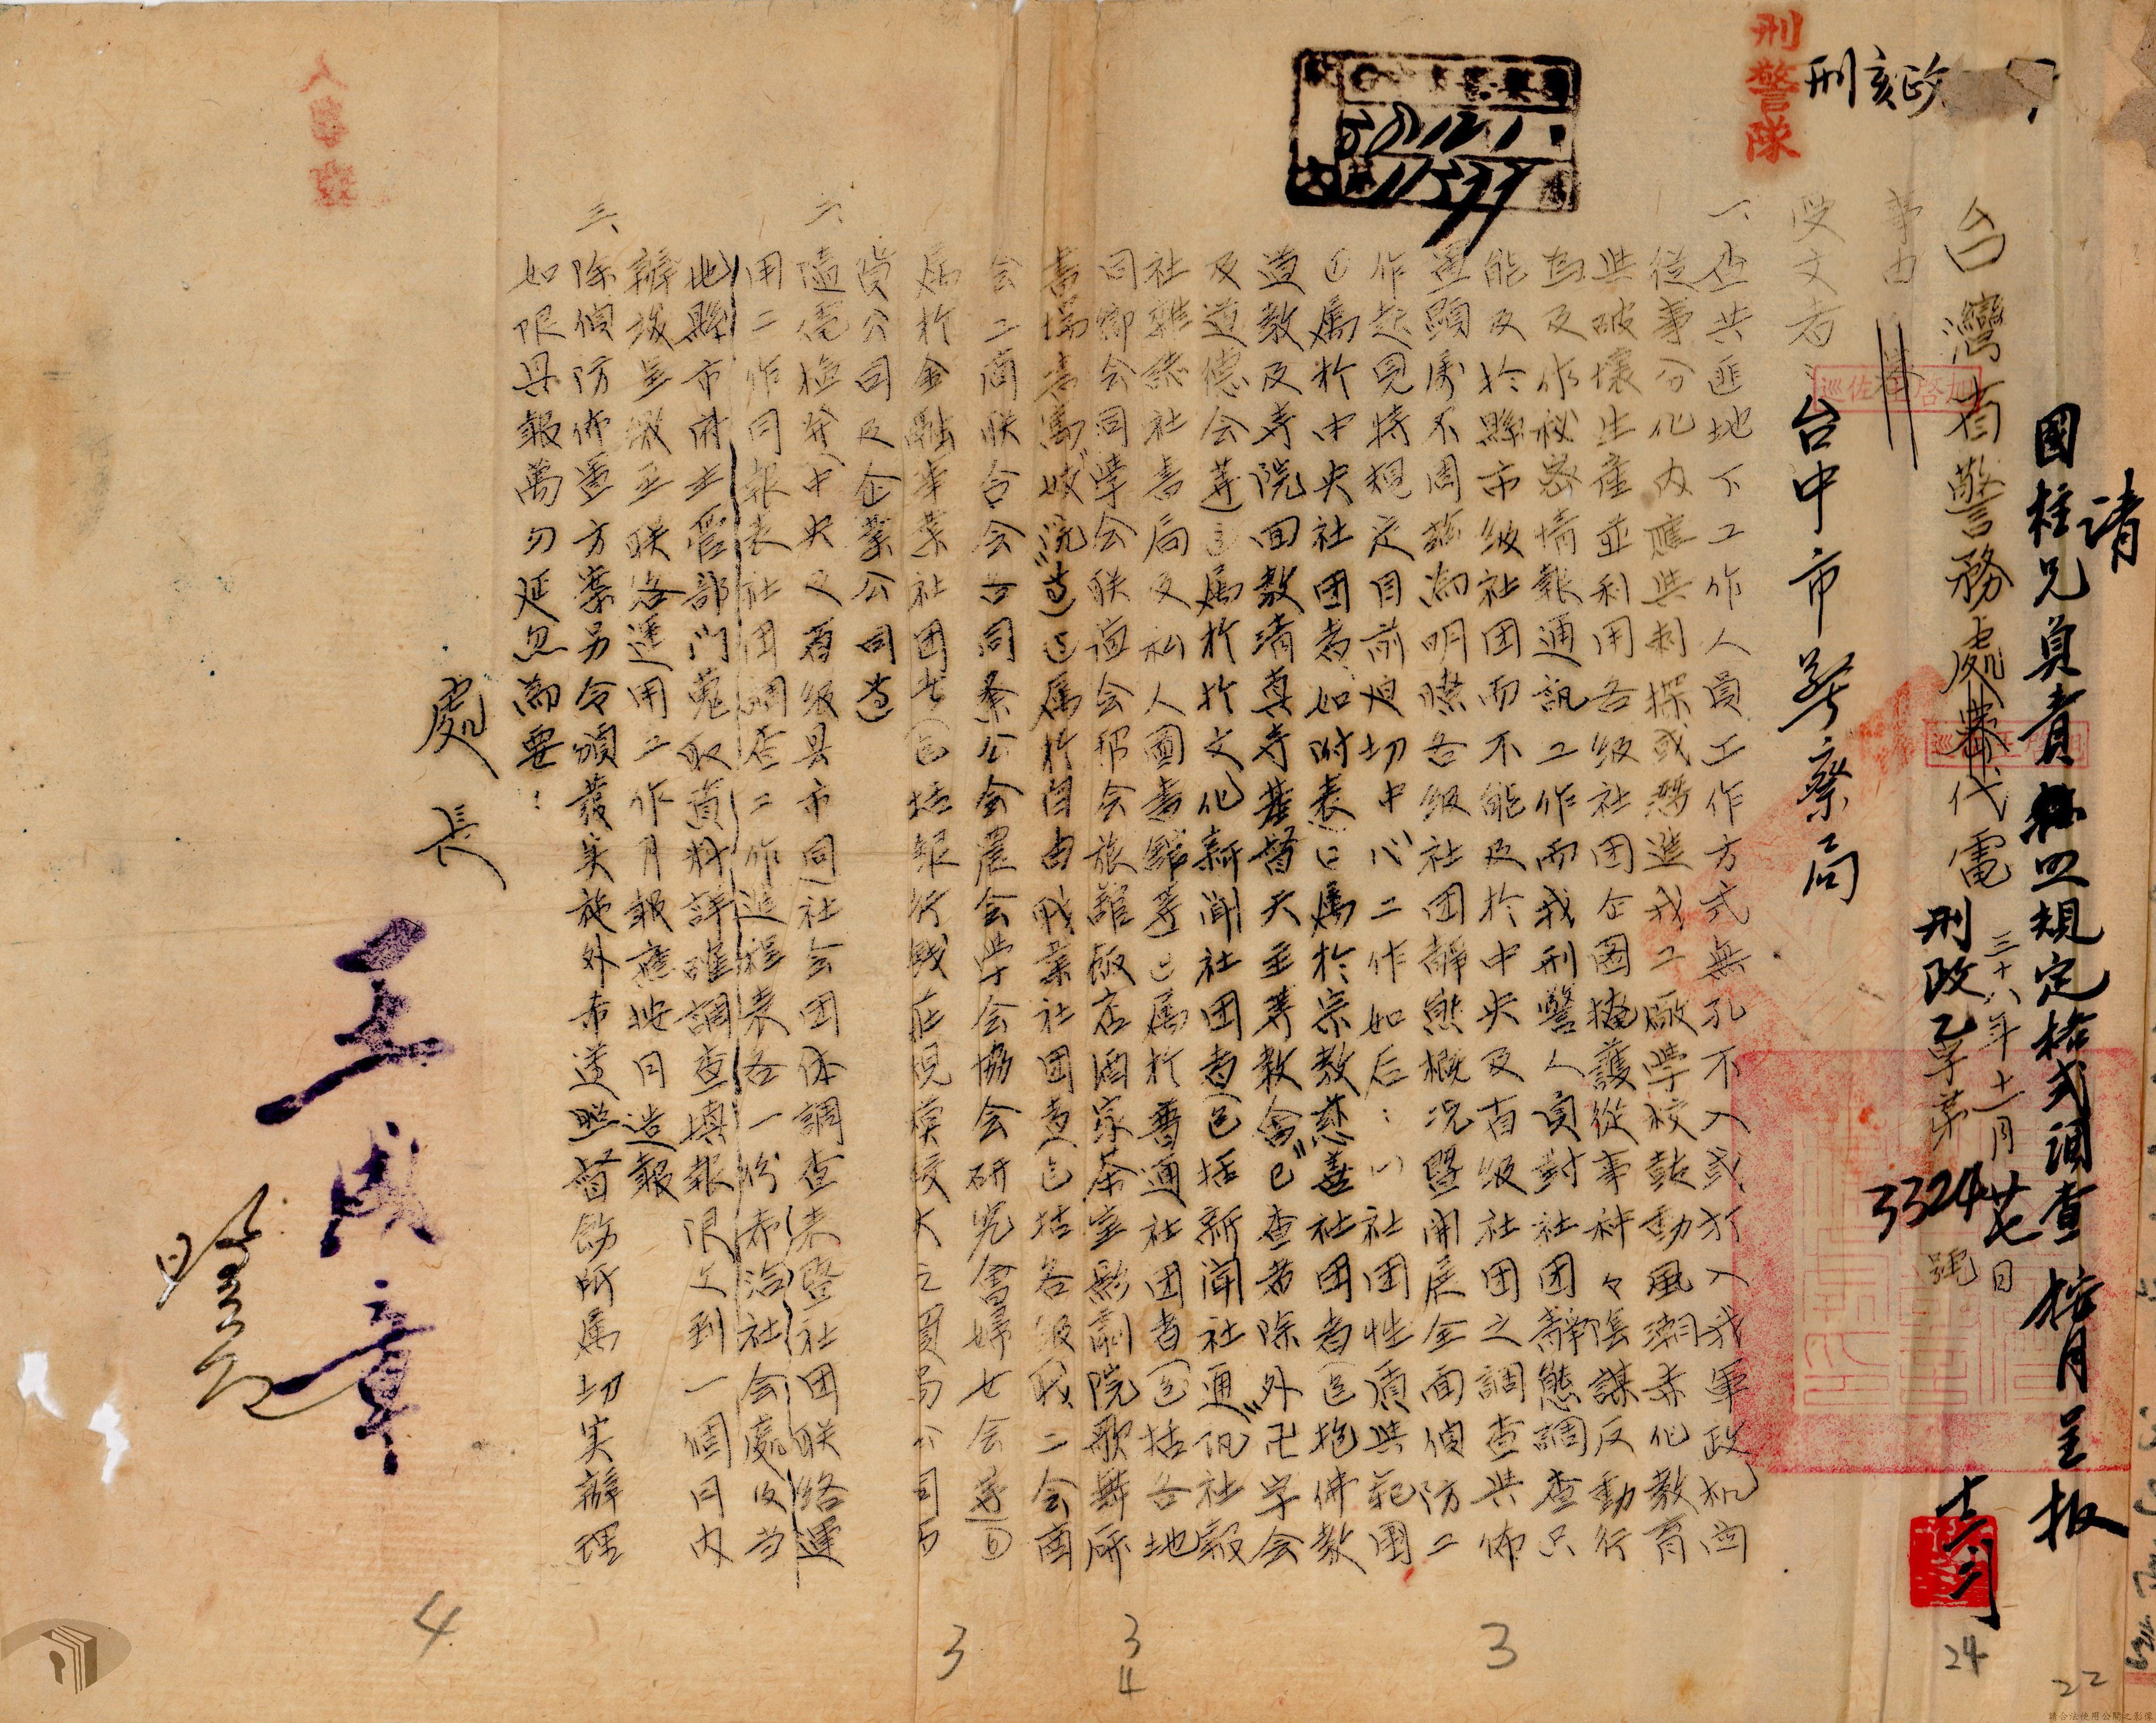 請
國柱兄負責照規定格式調查按月呈报
台灣省警務處代電
三十八年十一月廿七日
刑政乙字第3324號
刑亥政
刑警隊
事由
受文者：台中市警察局
一、查共匪地下工作人員工作方式無孔不入或打入我軍政机關
從事分化內應與刺探或煽進我工廠學校鼓動風潮赤化教育
與破壞生產並利用各級社团企圖掩護從事种々陰謀反動行
為及作秘密情報通訊工作而我刑警人員對社团靜態調查只
能及於縣市級社团而不能及於中央及省級社团之調查與佈
置顯屬不周茲為明瞭各級社团靜態概況暨開展全面偵防工
作起見特規定目前迫切中心工作如后：(1)社团性質與範围
①屬於中央社团者如附表②屬於宗教慈善社团者(包括佛教
道教及寺院回教清真寺基督天主等教會已查者除外卍字会
及道德会等)③屬於文化新聞社团者(包括新聞社通訊社報
社雜誌社書局及私人圖書館等)④屬於普通社团者(包括各地
同鄉会同學会联誼会帮会旅館飯店酒家茶室影劇院歌舞所
書場書寓妓院等)⑤屬於自由职業社团者(包括各级职工会商
会工商联合会各同業公会農会學会協会研究會婦女会等)⑥
屬於金融事業社团者(包括銀行錢莊規模較大之貿易公司百
貨公司及企業公司等)
二、隨電檢發中央及省级县市同社会团体調查表暨社团联絡運
用工作同報表社团調查工作進程表各一份希洽社会處及当
地縣市府主管部門蒐取資料詳確調查填報限文到一個月內
辦竣呈繳至联络運用工作月報應按日造報
三、除偵防佈置方案另令頒發实施外希遵照督飭所屬切实辦理
如限具報萬勿延忽為要：
處長
王成章
人事室
50.12.1
11577
3
3
4
3
4
24
22
請合法使用公開之影像